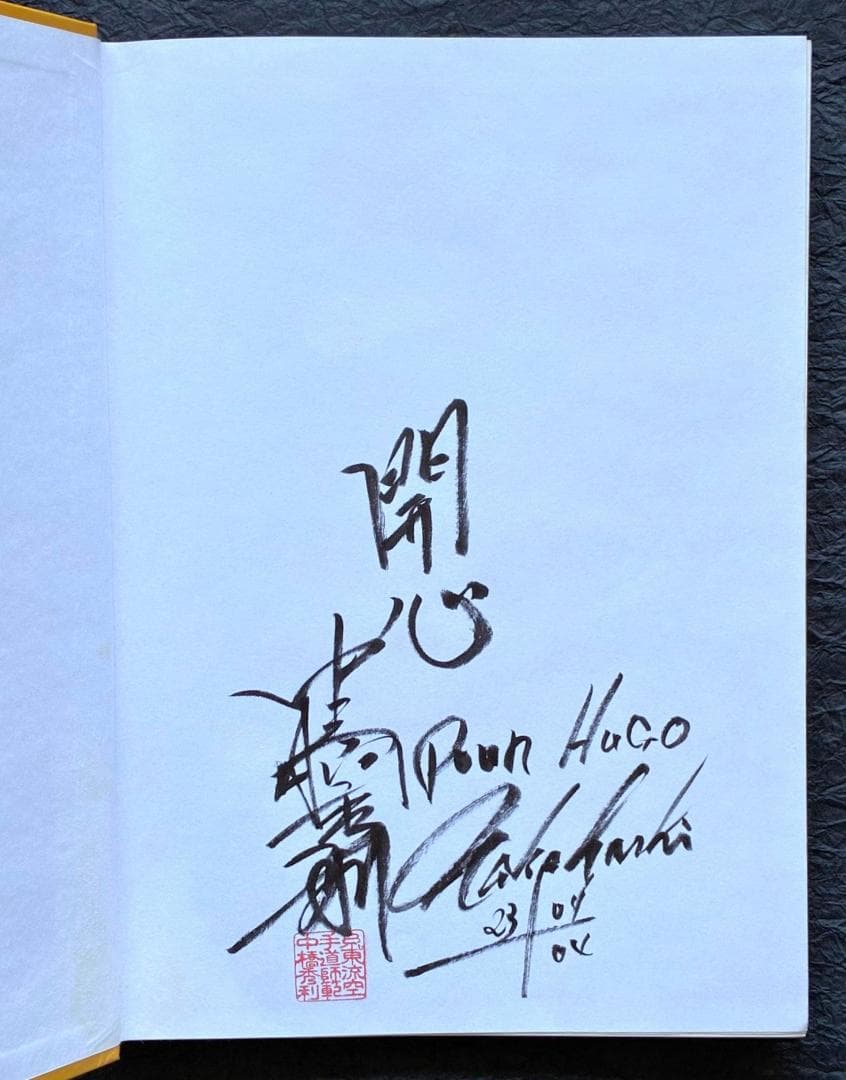 開心
中橋秀利
Pour HuGO
Nakahashi
23/04/04
糸東流空
手道師範
中橋秀利